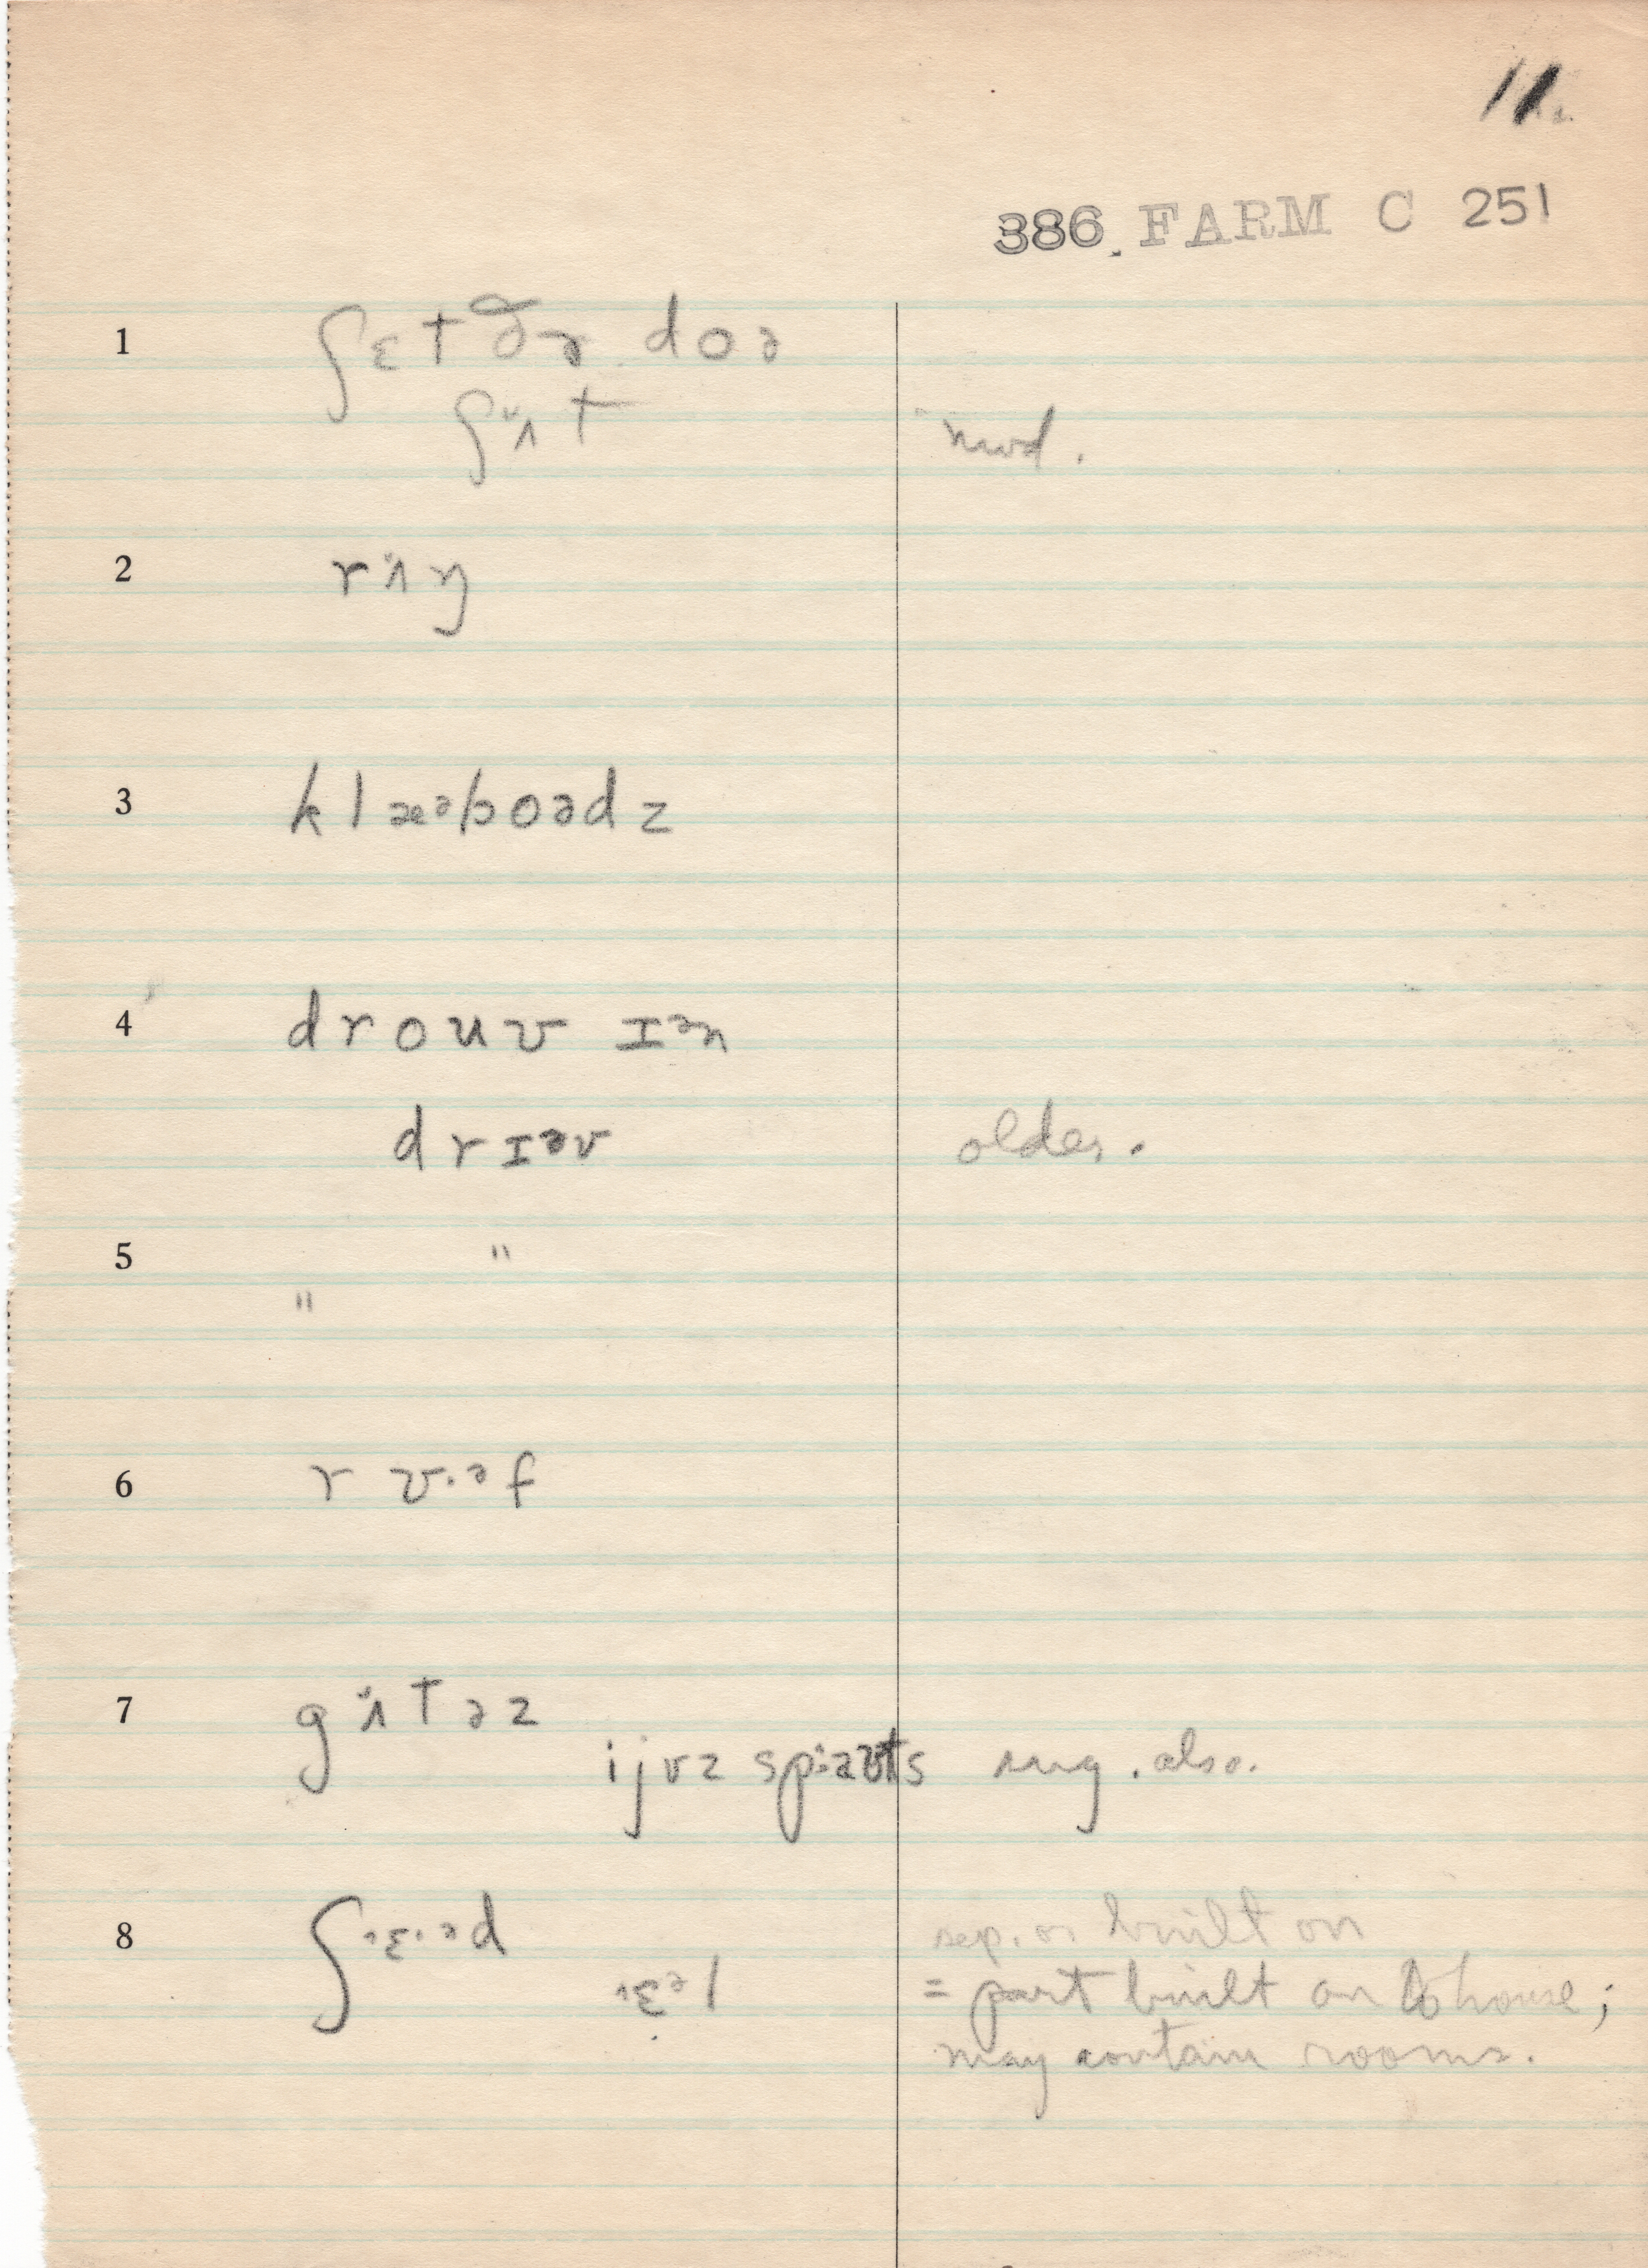 11.
386 FARM C 251
1 ʃɛt ðə doə
ʃʌ̆t mod.
2 rʌ̆ŋ
3 klæᵊboədz
4 drouv ɪᵊn
drɪᵊv older.
5 "
" 
6 rʊ·ᵊf
7 gʌ̆təz
ijvz spəʊts sug. also.
8 ʃᶦɛ·ᵊd sep. or built on
ᶦɛᵊl = part built on to house;
may contain rooms.